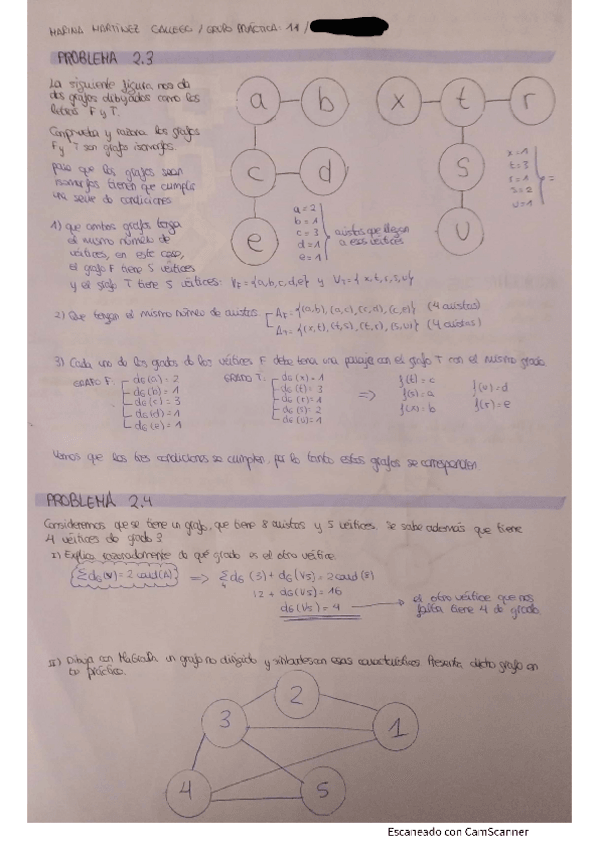 MARINA MARTÍNEZ GALLEGO / GRUPO PRÁCTICA: 11 /
PROBLEMA 2.3
La siguiente figura nos da
dos grafos dibujados como las
letras F y T.
Comprueba y razona los grafos
F y T son grafos isomorfos.
para que los grafos sean
isomorfos tienen que cumplir
una serie de condiciones
1) que ambos grafos tenga
el mismo número de
vértices, en este caso,
el grafo F tiene 5 vértices
y el grafo T tiene 5 vértices: VF = {a,b,c,d,e} y VT = {x,t,r,s,u}
a b
c d
e
x t r
s
u
a = 2
b = 1
c = 3
d = 1
e = 1
aristas que llegan
a esos vértices
x = 1
t = 3
r = 1
s = 2
u = 1
=
2) Que tengan el mismo número de aristas
AF = {(a,b), (a,c), (c,d), (c,e)} (4 aristas)
AT = {(x,t), (t,s), (t,r), (s,u)} (4 aristas)
3) Cada uno de los grados de los vértices F debe tener una pareja con el grafo T con el mismo grado
GRAFO F:
dG(a) = 2
dG(b) = 1
dG(c) = 3
dG(d) = 1
dG(e) = 1
GRAFO T:
dG(x) = 1
dG(t) = 3
dG(r) = 1
dG(s) = 2
dG(u) = 1
=>
f(t) = c
f(s) = a
f(x) = b
f(u) = d
f(r) = e
Vemos que las tres condiciones se cumplen, por lo tanto estos grafos se corresponden
PROBLEMA 2.4
Consideremos que se tiene un grafo, que tiene 8 aristas y 5 vértices. Se sabe además que tiene
4 vértices de grado 3
I) Explica razonadamente de qué grado es el otro vértice.
ΣdG(v) = 2 card(A) => Σ dG(3) + dG(V5) = 2 card(8)
4
12 + dG(V5) = 16
dG(V5) = 4
el otro vértice que nos
falta tiene 4 de grado
II) Dibuja con MaGraDa un grafo no dirigido y sin lazos con esas características. Presenta dicho grafo en
tu práctica.
2
3
1
4
5
Escaneado con CamScanner